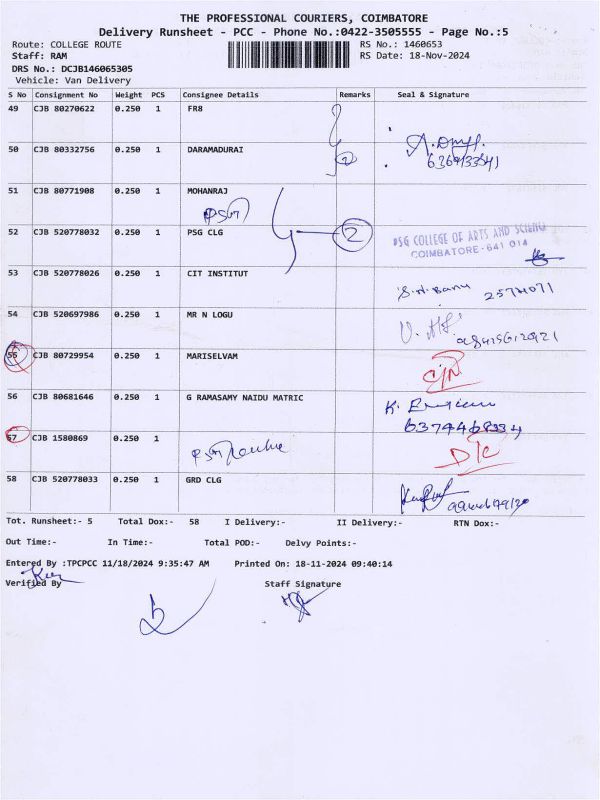 THE PROFESSIONAL COURIERS, COIMBATORE
Delivery Runsheet - PCC - Phone No.:0422-3505555 - Page No.:5
Route: COLLEGE ROUTE RS No.: 1460653
Staff: RAM RS Date: 18-Nov-2024
DRS No.: DCJB146065305
Vehicle: Van Delivery
S No Consignment No Weight PCS Consignee Details Remarks Seal & Signature
49 CJB 80270622 0.250 1 FR8
50 CJB 80332756 0.250 1 DARAMADURAI 2
51 CJB 80771908 0.250 1 MOHANRAJ
PSG
52 CJB 520778032 0.250 1 PSG CLG 2 PSG COLLEGE OF ARTS AND SCIENCE
COIMBATORE - 641 014
53 CJB 520778026 0.250 1 CIT INSTITUT
54 CJB 520697986 0.250 1 MR N LOGU
55 CJB 80729954 0.250 1 MARISELVAM
56 CJB 80681646 0.250 1 G RAMASAMY NAIDU MATRIC
57 CJB 1580869 0.250 1 D/C
58 CJB 520778033 0.250 1 GRD CLG
Tot. Runsheet:- 5 Total Dox:- 58 I Delivery:- II Delivery:- RTN Dox:-
Out Time:- In Time:- Total POD:- Delvy Points:-
Entered By :TPCPCC 11/18/2024 9:35:47 AM Printed On: 18-11-2024 09:40:14
Verified By Staff Signature